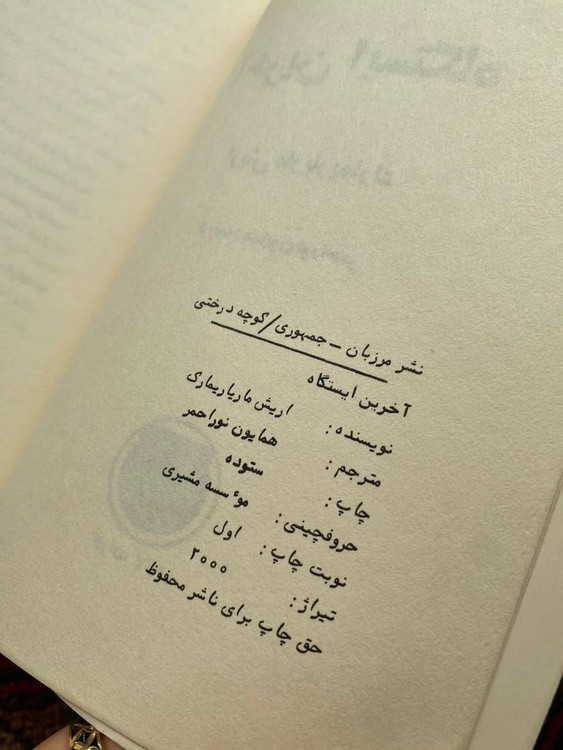 نشر مرزبان – جمهوری/کوچه درختی
آخرین ایستگاه
نویسنده: اریش ماریا ریمارک
مترجم: همایون نوراحمر
چاپ: ستوده
حروفچینی: مؤسسه مشیری
نوبت چاپ: اول
تیراژ: ۲۰۰۰
حق چاپ برای ناشر محفوظ